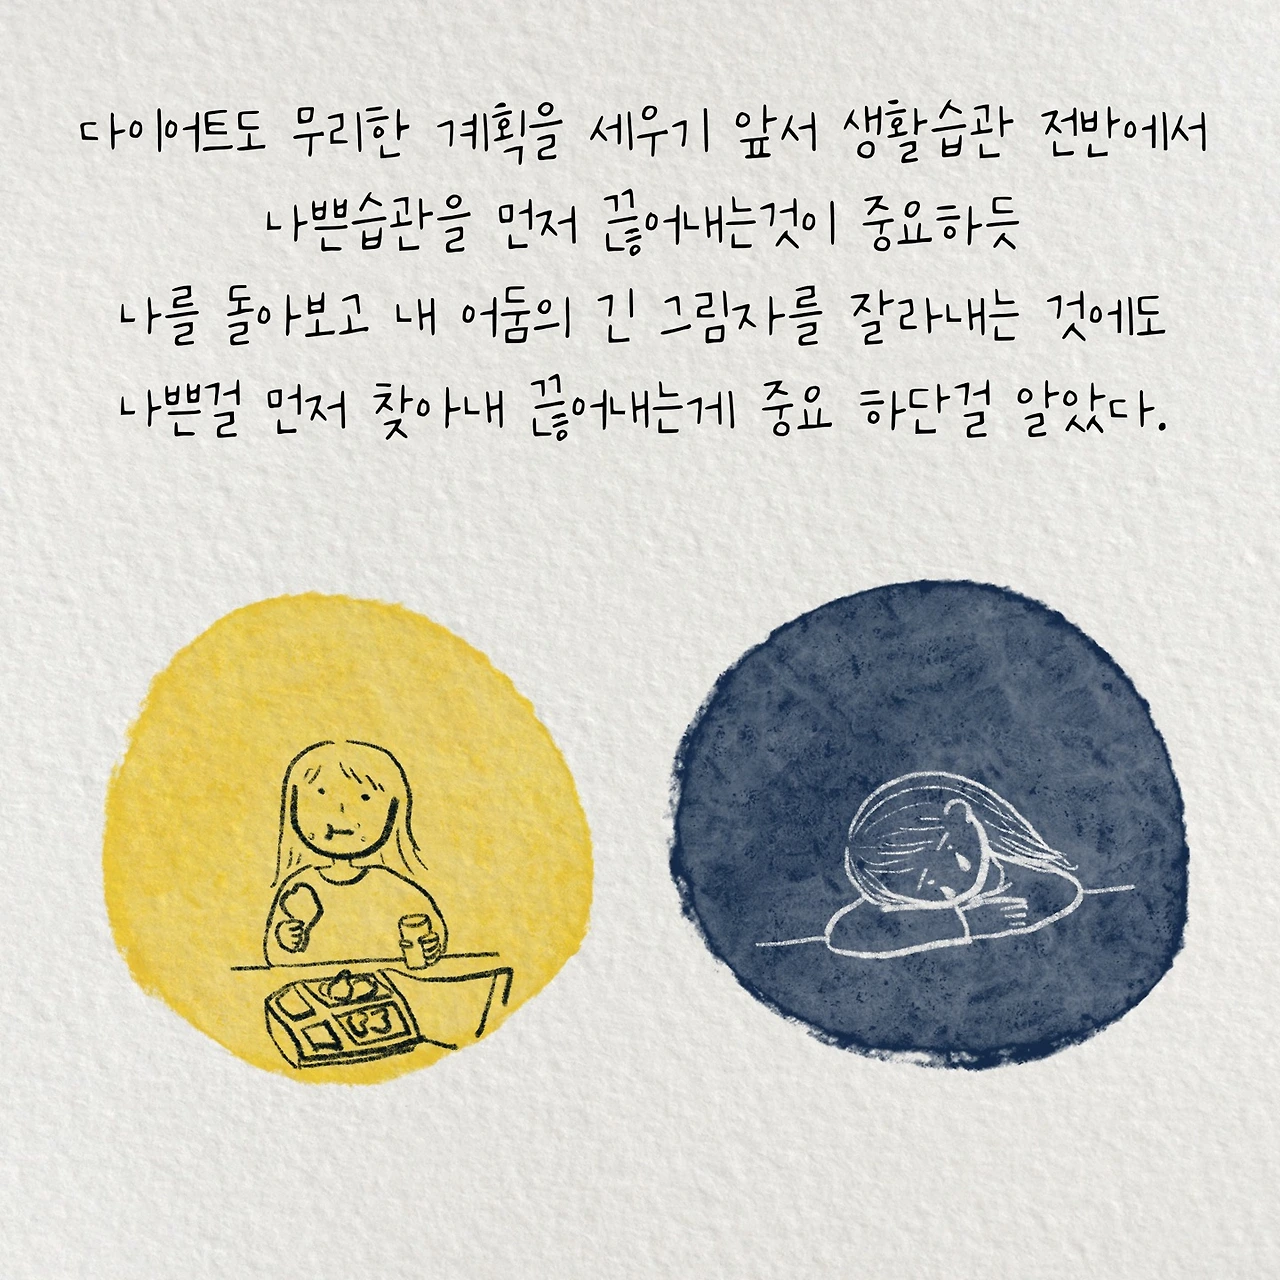 다이어트도 무리한 계획을 세우기 앞서 생활습관 전반에서
나쁜습관을 먼저 끊어내는것이 중요하듯
나를 돌아보고 내 어둠의 긴 그림자를 잘라내는 것에도
나쁜걸 먼저 찾아내 끊어내는게 중요 하단걸 알았다.